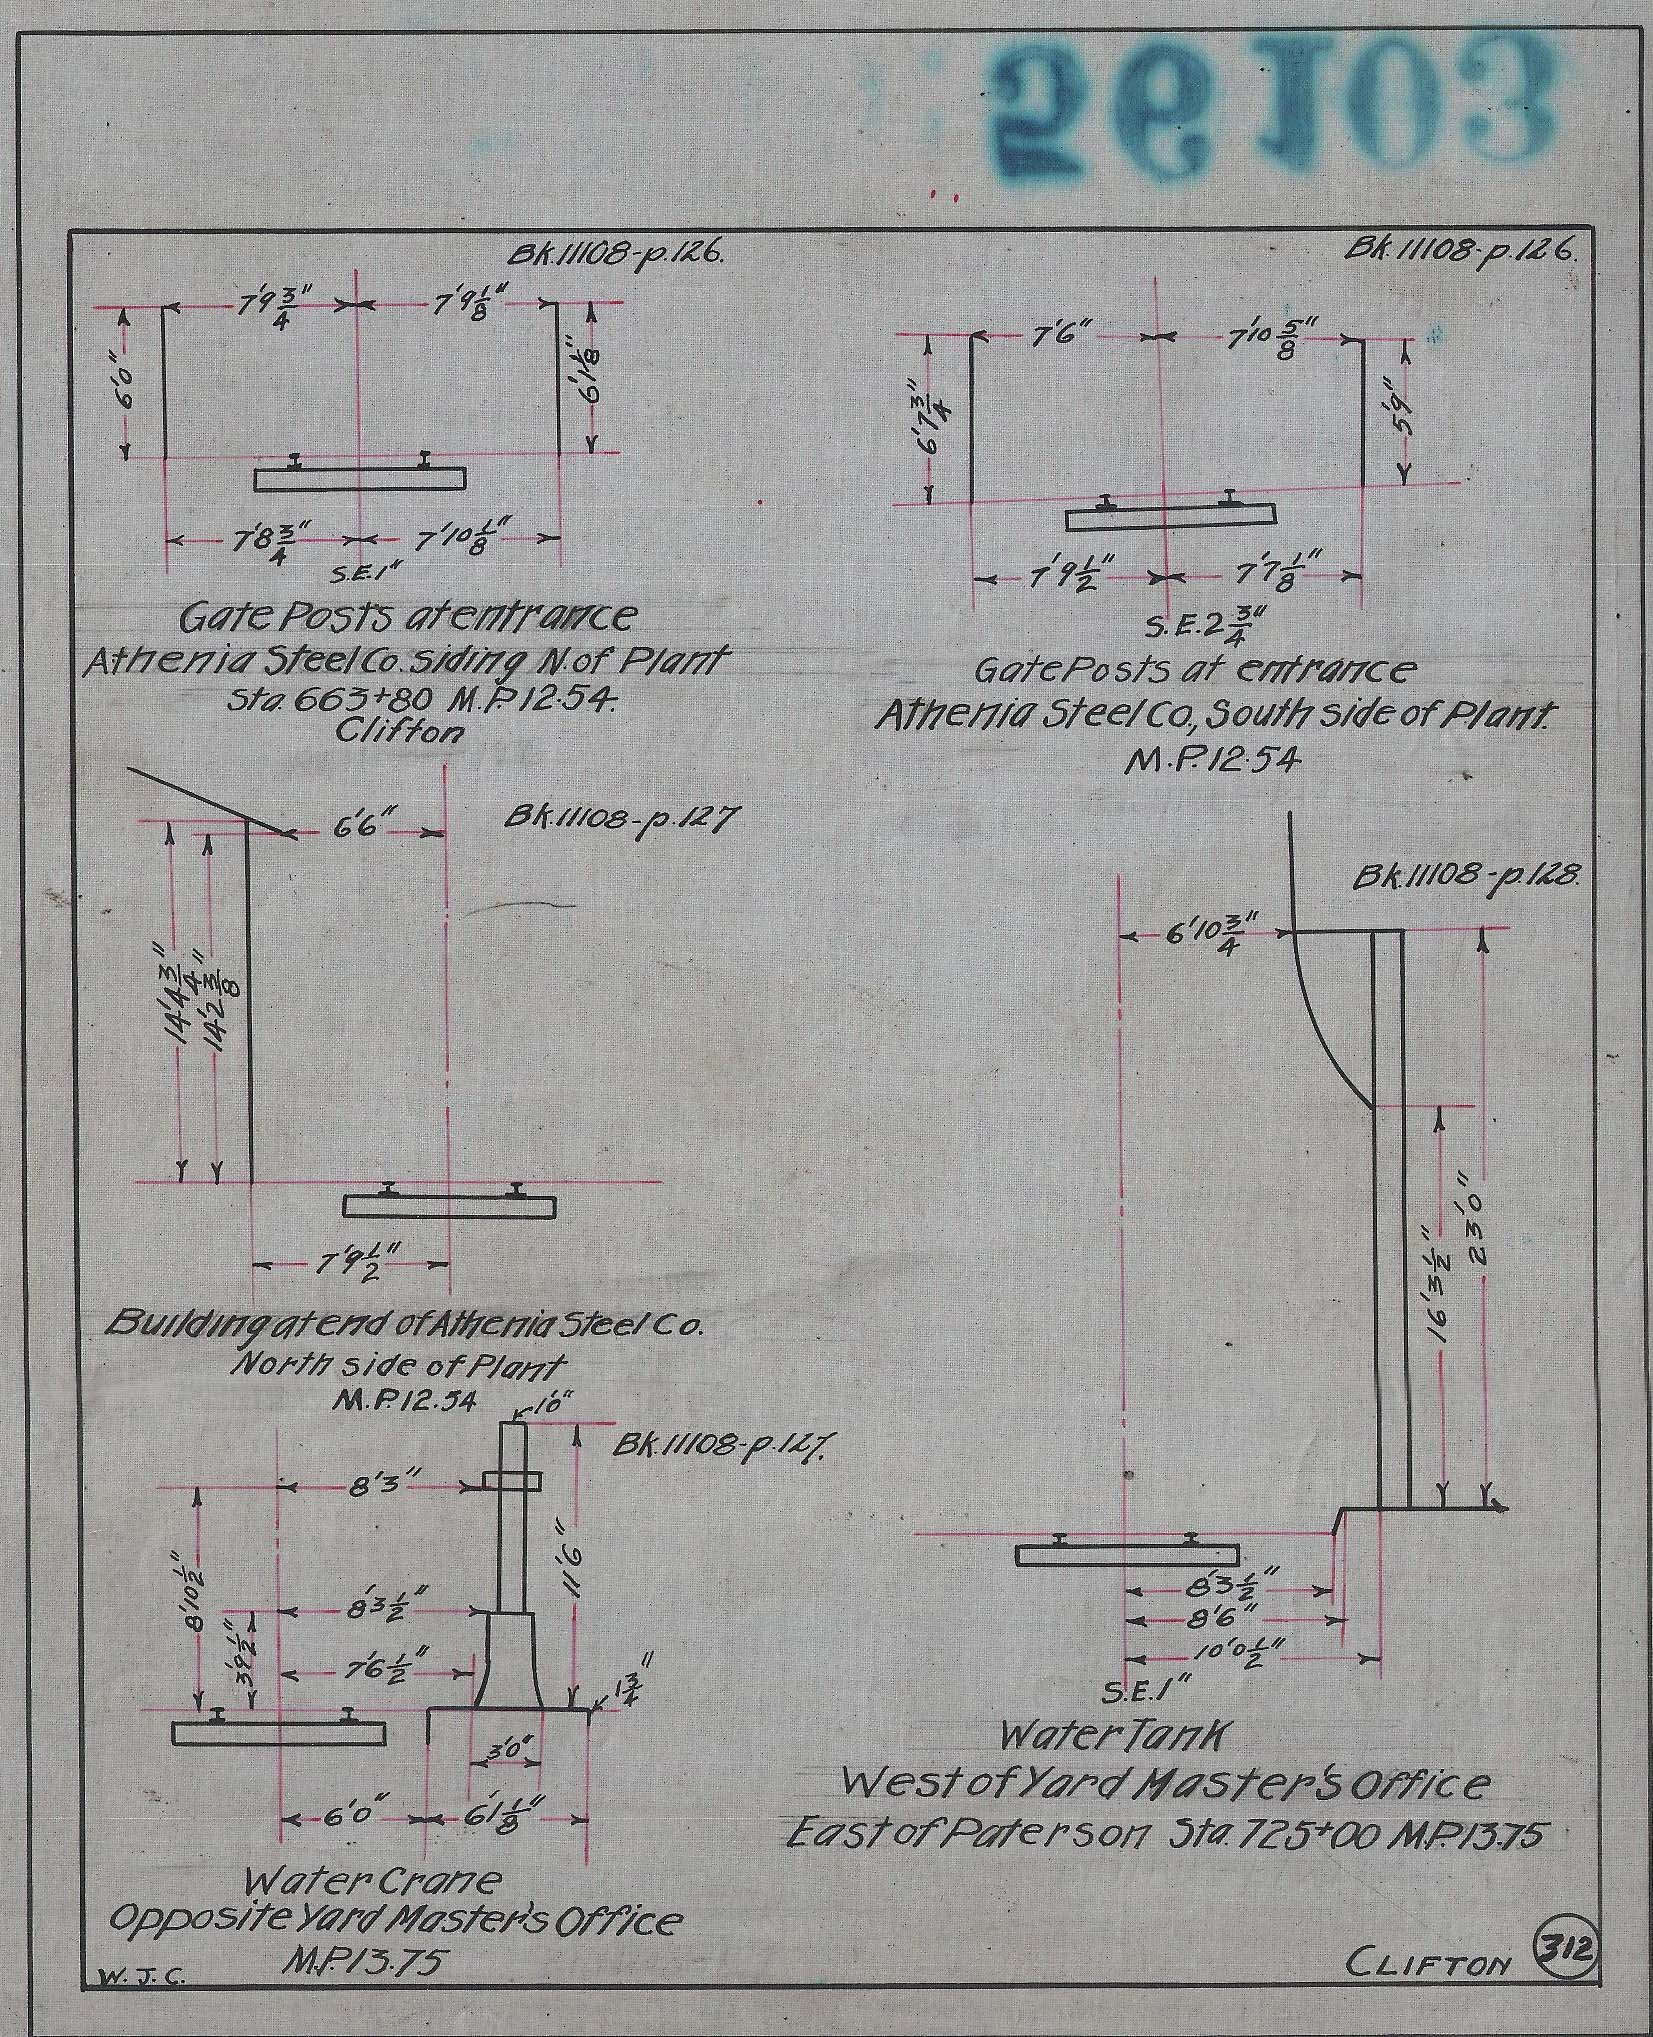 Bk.11108-p.126.
7'9 3/4"
7'9 1/8"
6'0"
6'1 1/8"
7'8 3/4"
7'10 1/8"
S.E.1"
Gate Posts at entrance
Athenia Steel Co. siding N. of Plant
Sta. 663+80 M.P. 12.54.
Clifton
Bk.11108-p.126.
7'6"
7'10 5/8"
6'7 3/4"
5'9"
7'9 1/2"
7'7 1/8"
S.E. 2 3/4"
Gate Posts at entrance
Athenia Steel Co., South side of Plant.
M.P. 12.54
6'6"
Bk.11108-p.127
14'4 3/4"
14'2 3/8"
7'9 1/2"
Building at end of Athenia Steel Co.
North side of Plant
M.P. 12.54
Bk.11108-p.128.
6'10 3/4"
16'3 1/2"
23'0"
8'3 1/2"
8'6"
10'0 1/2"
S.E.1"
Water Tank
West of Yard Master's Office
East of Paterson Sta. 725+00 M.P. 13.75
1'0"
Bk.11108-p.127.
8'3"
11'6"
8'10 1/2"
8'3 1/2"
3'9 1/2"
7'6 1/2"
1 3/4"
3'0"
6'0"
6'1 1/8"
Water Crane
Opposite Yard Master's Office
M.P. 13.75
W.J.C.
CLIFTON 312